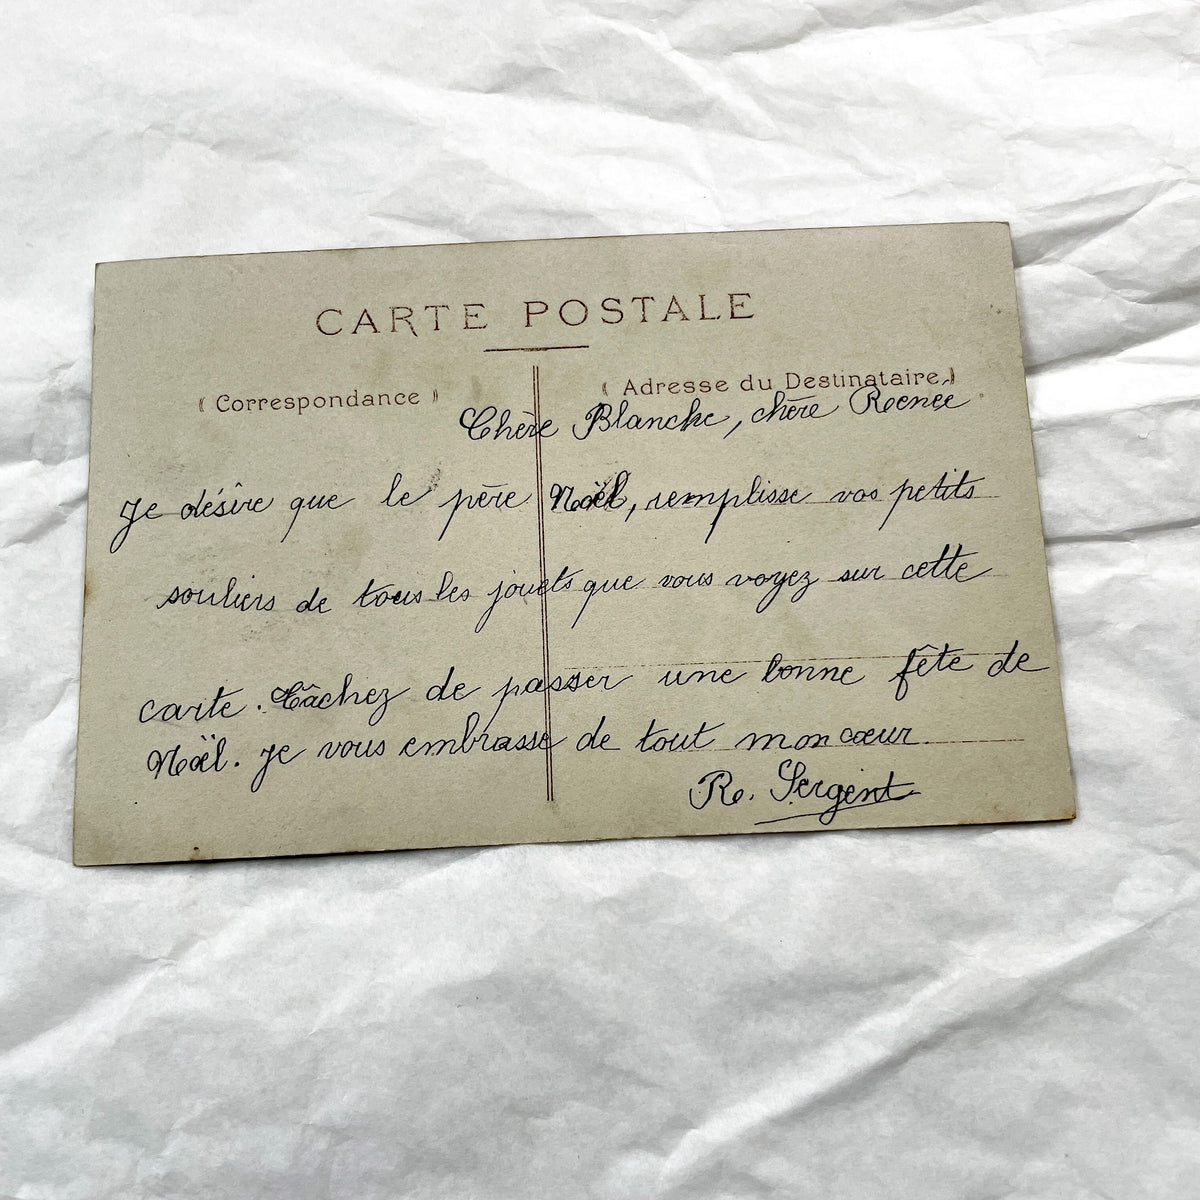 CARTE POSTALE
( Correspondance )
( Adresse du Destinataire )
Chère Blanche, chère Reenée
Je désire que le père Noël, remplisse vos petits
souliers de tous les jouets que vous voyez sur cette
carte. Tâchez de passer une bonne fête de
Noël. Je vous embrasse de tout mon cœur.
R. Sergent